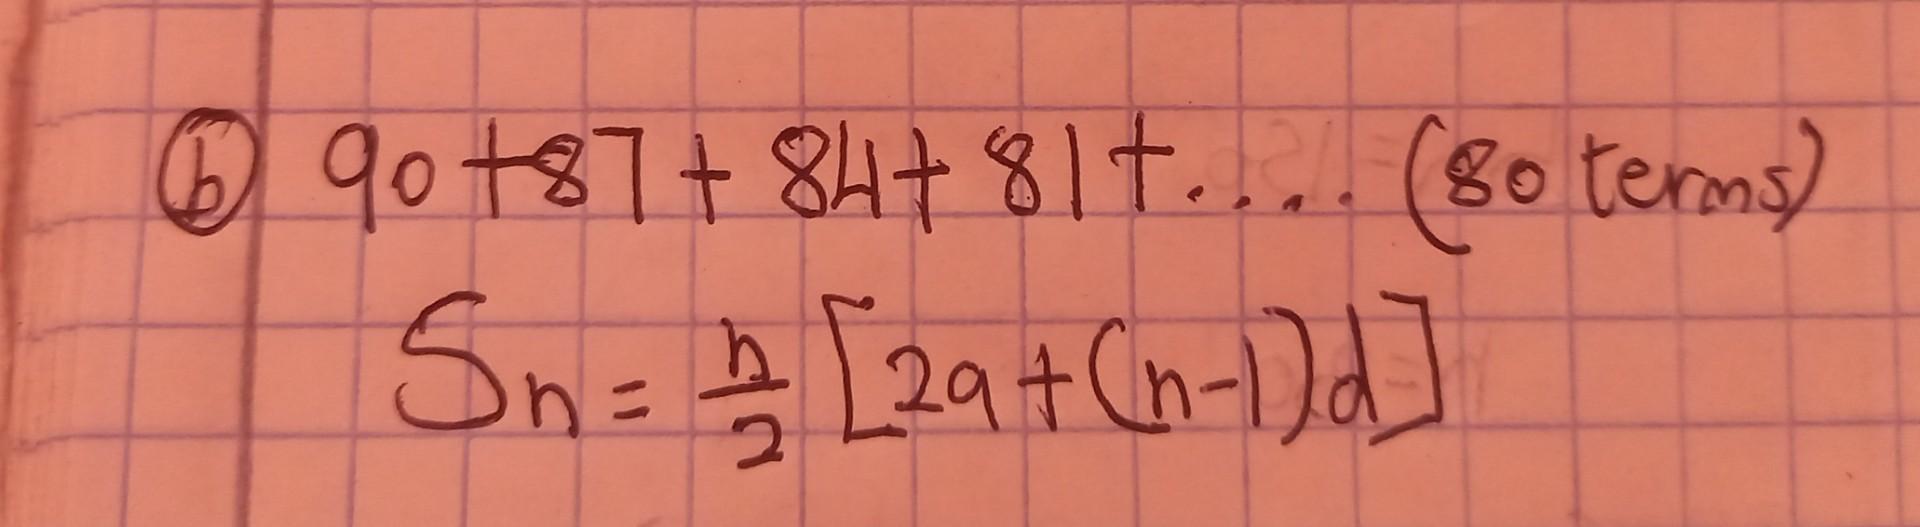 (b) 90 + 87 + 84 + 81 + ..... (80 terms)
Sn = n/2 [2a + (n-1)d]